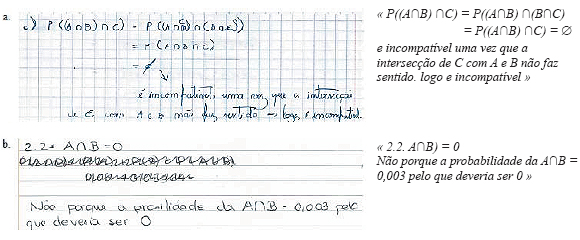 a.
c) P((A∩B)∩C) = P((A∩B)∩(B∩C))
= P((A∩B)∩C)
= ∅
é incompatível uma vez que a intersecção
de C com A e B não faz sentido → logo é incompatível
« P((A∩B) ∩C) = P((A∩B) ∩(B∩C)
= P((A∩B) ∩C) = ∅
e incompatível uma vez que a
intersecção de C com A e B não faz
sentido. logo e incompatível »
b.
2.2. A∩B = 0
Não porque a probilidade da A∩B = 0,003 pelo
que deveria ser 0
« 2.2. A∩B) = 0
Não porque a probabilidade da A∩B =
0,003 pelo que deveria ser 0 »